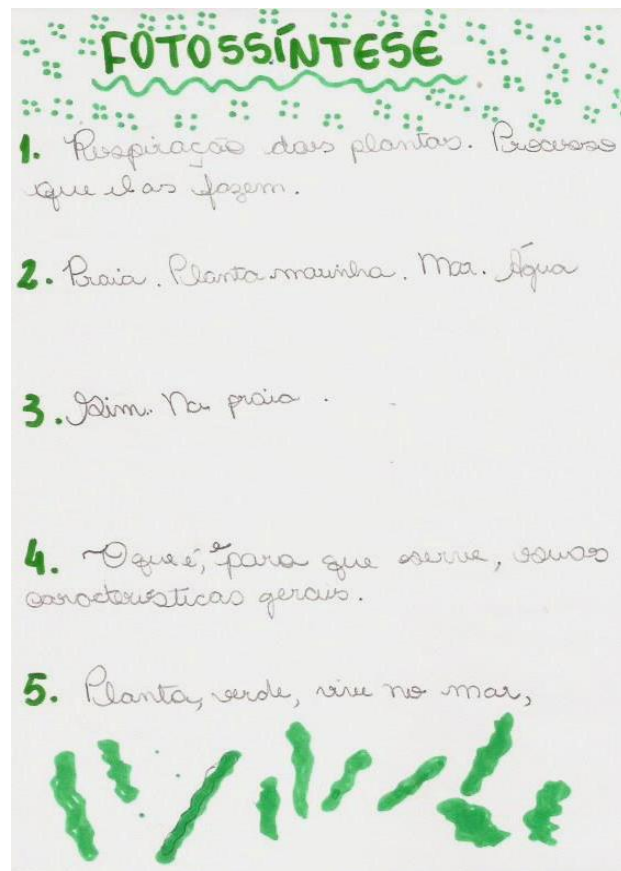 FOTOSSÍNTESE
1. Respiração das plantas. Processo
que elas fazem.
2. Praia. Planta marinha. Mar. Água
3. Sim. Na praia.
4. O que é, e para que serve, suas
características gerais.
5. Planta, verde, vive no mar,